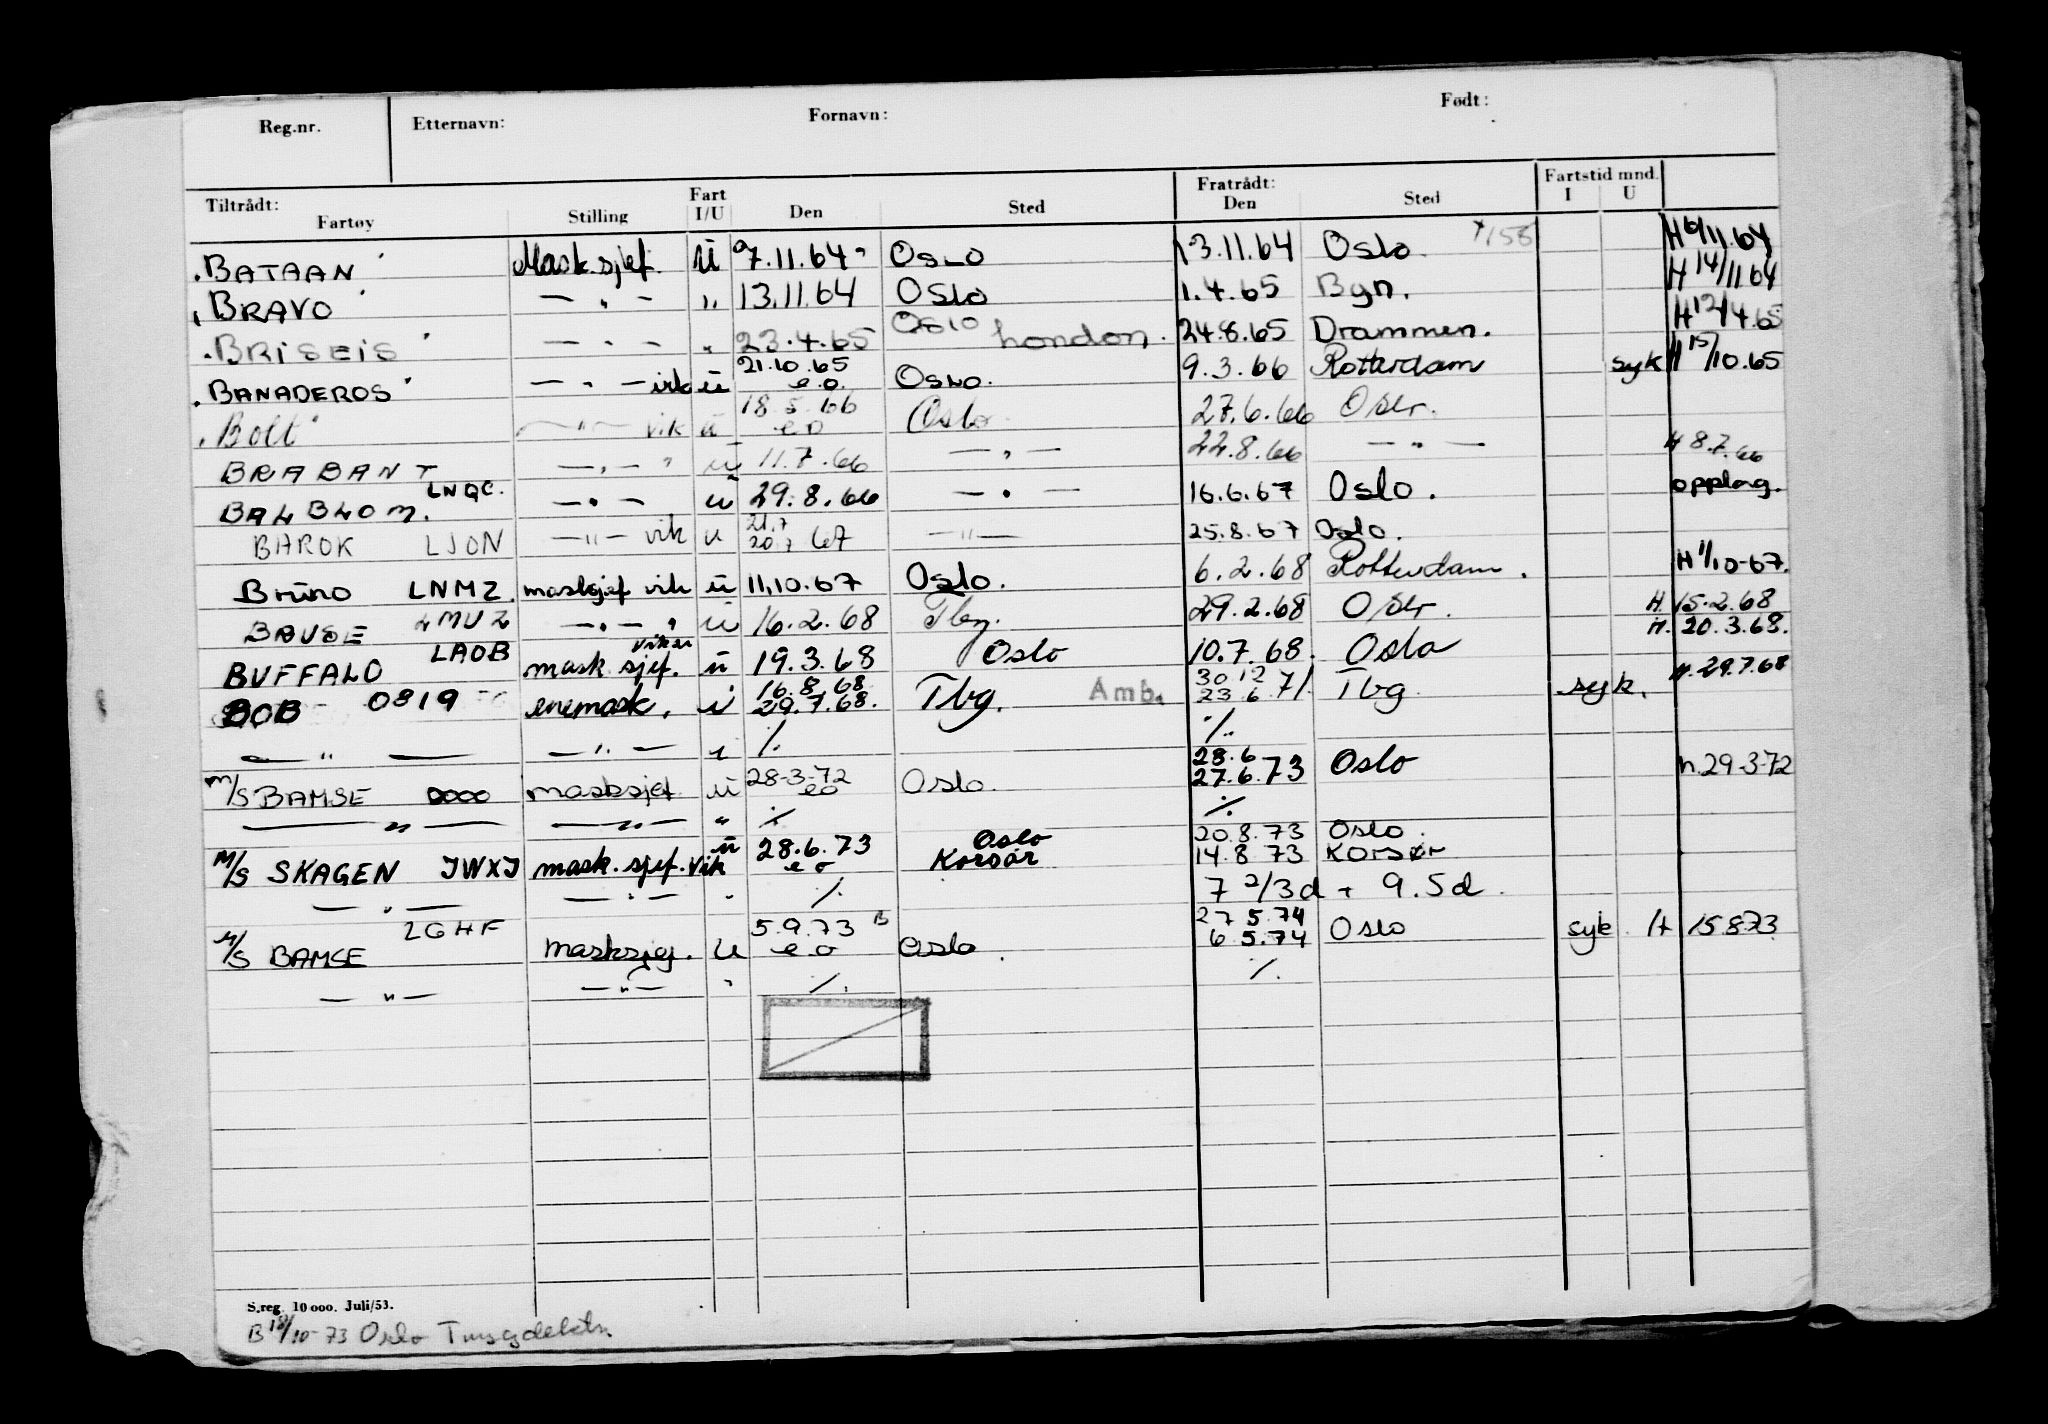 Reg.nr. Etternavn: Fornavn: Født:
Tiltrådt: Fratrådt: Fartstid mnd.
Fartøy Stilling Fart I/U Den Sted Den Sted I U
BATAAN Mask.sjef. ü 7.11.64 Oslo 13.11.64 Oslo H 6/11.64
BRAVO — " — " 13.11.64 Oslo 1.4.65 Bgn. H 14/11 64
BRISEIS — " — " 23.4.65 Oslo London. 24.8.65 Drammen. H 12/4.65
BANADEROS — " — vik ü 21.10.65 e.o. Oslo. 9.3.66 Rotterdam syk H 15/10.65
Bolt — " — vik ü 18.5.66 e o Oslo 27.6.66 Oslo.
BRABANT — " — " ü 11.7.66 — " — 22.8.66 — " — H 8.7.66
BALBLOM. LNQC. — " — ü 29.8.66 — " — 16.6.67 Oslo. opplag.
BAROK LJON — " — vik u 21.7 20.7 67 — " — 25.8.67 Oslo.
Bruno LNMZ. masksjef vik ü 11.10.67 Oslo. 6.2.68 Rotterdam. H 11/10-67.
BAUSE LMUZ — " — " ü 16.2.68 Tbg. 29.2.68 Oslo. H. 15.2.68
BUFFALO LAOB mask.sjef. vikar ü 19.3.68 Oslo 10.7.68. Oslo H. 20.3.68.
BOB 0819 enemask. i 16.8.68 29.7.68. Tbg. Amb. 30 12 23 6 71. Tbg. syk. H. 29.7.68
— " — — " — i ./. ./.
M/S BAMSE masksjef ü 28-3-72 eo Oslo. 28.6 27.6.73 Oslo h.29-3-72
— " — — " — " ./. ./.
M/S SKAGEN JWXJ mask.sjef.vik ü 28.6.73 e o Oslo Korsør 20.8.73 Oslo. 14.8 73 Korsør
— " — — " — " ./. 7 2/3 d + 9.5 d.
M/S BAMSE LGHF masksjef. U 5.9.73 B e o Oslo 27 5.74 6 5.74 Oslo syk H 15.8.73
— " — — " — " ./. ./.
S.reg. 10 000. Juli/53.
B 18/10-73 Oslo